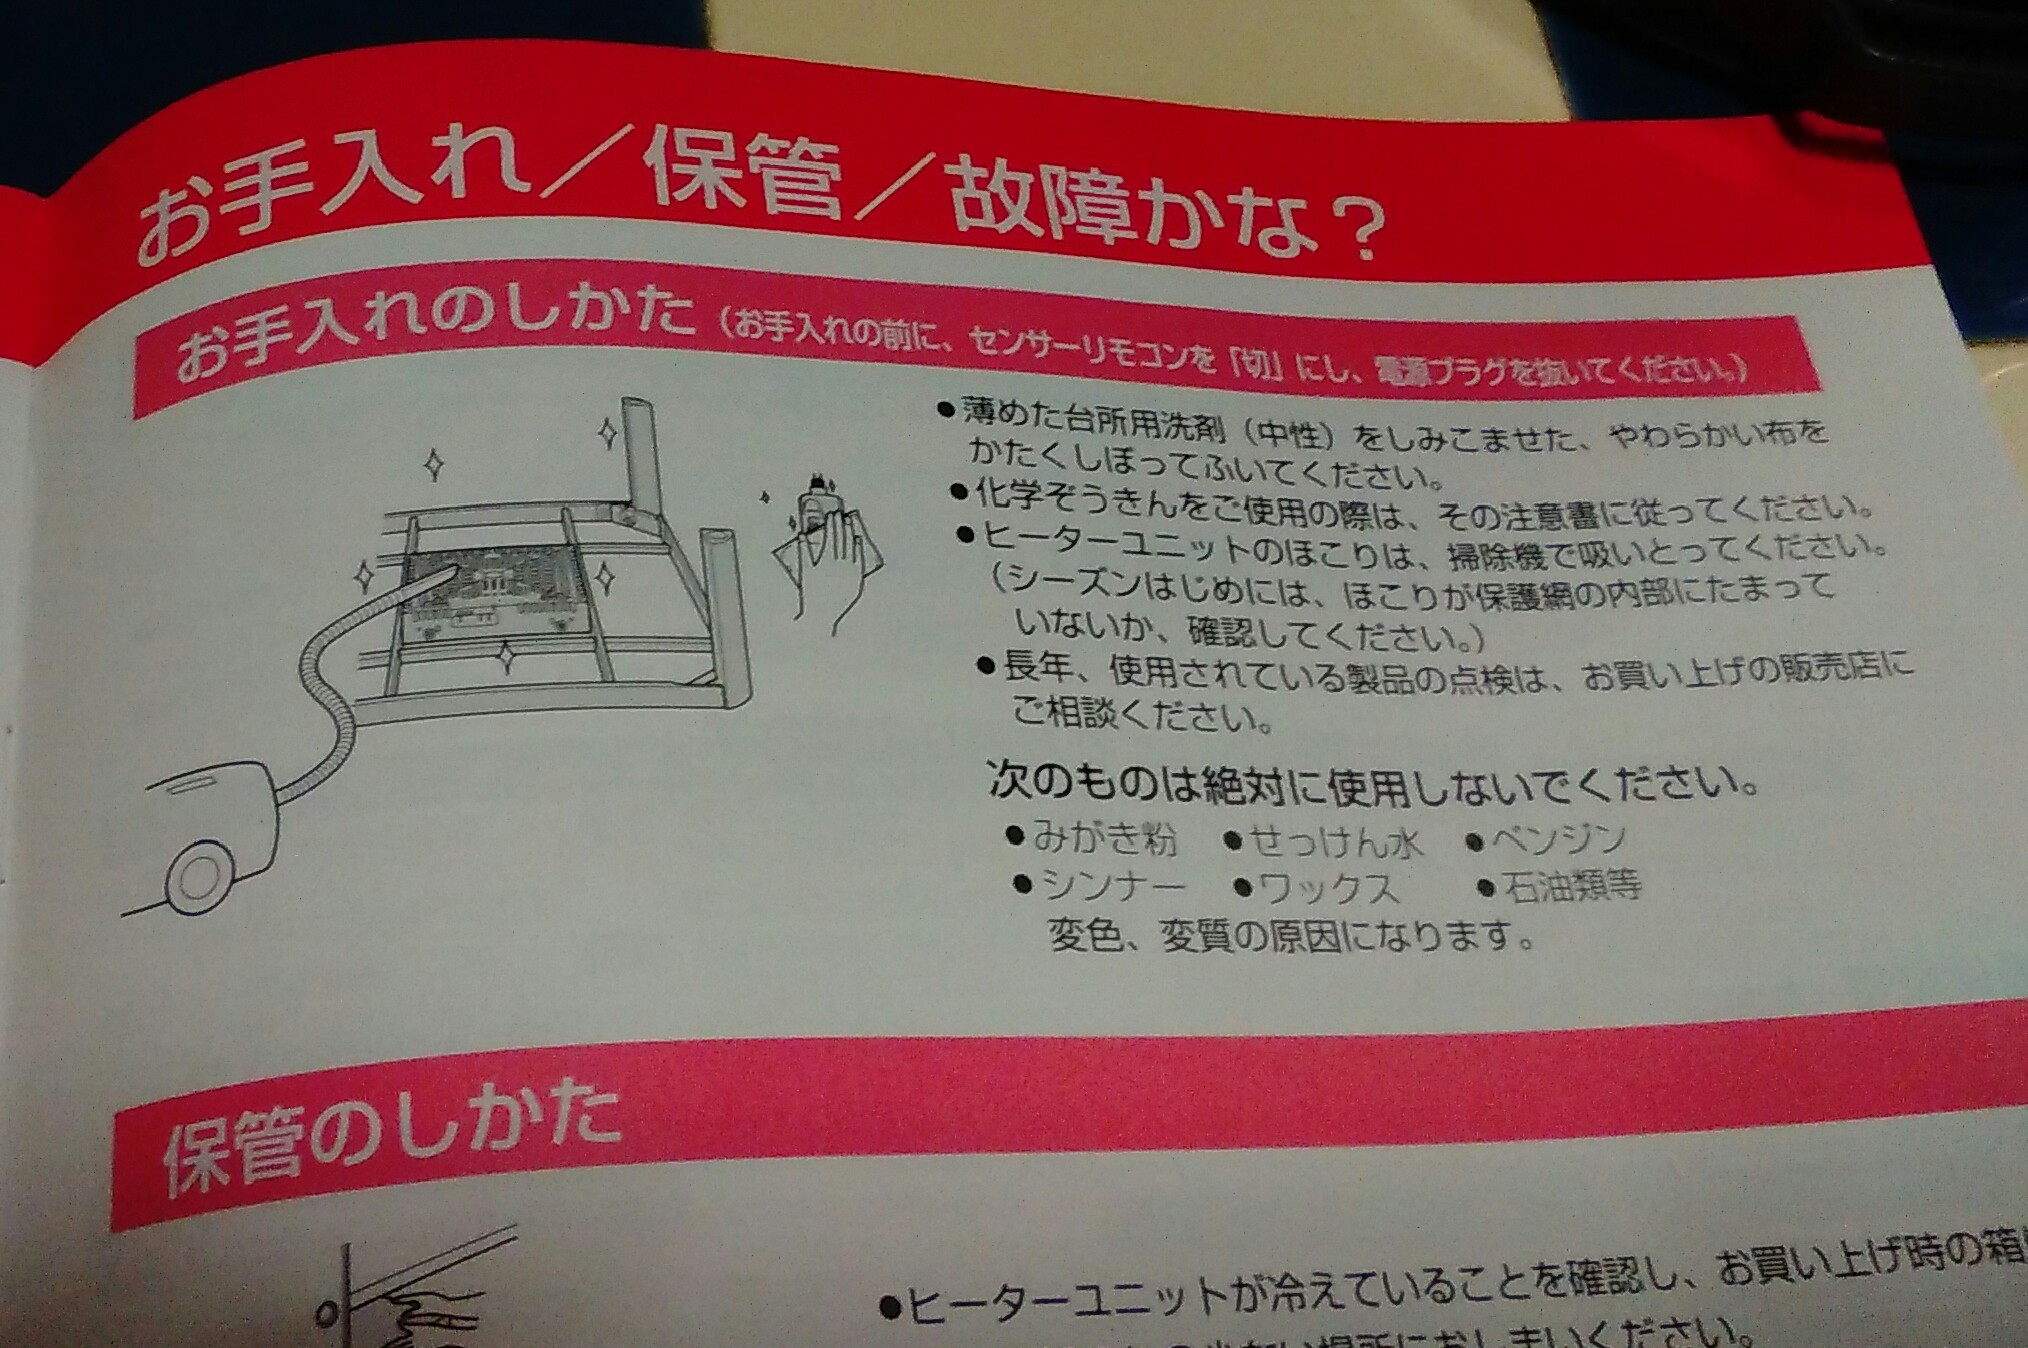 お手入れ／保管／故障かな？
お手入れのしかた（お手入れの前に、センサーリモコンを「切」にし、電源プラグを抜いてください。）
●薄めた台所用洗剤（中性）をしみこませた、やわらかい布を
かたくしぼってふいてください。
●化学ぞうきんをご使用の際は、その注意書に従ってください。
●ヒーターユニットのほこりは、掃除機で吸いとってください。
（シーズンはじめには、ほこりが保護網の内部にたまって
いないか、確認してください。）
●長年、使用されている製品の点検は、お買い上げの販売店に
ご相談ください。
次のものは絶対に使用しないでください。
●みがき粉 ●せっけん水 ●ベンジン
●シンナー ●ワックス ●石油類等
変色、変質の原因になります。
保管のしかた
●ヒーターユニットが冷えていることを確認し、お買い上げ時の箱
場所におしまいください。